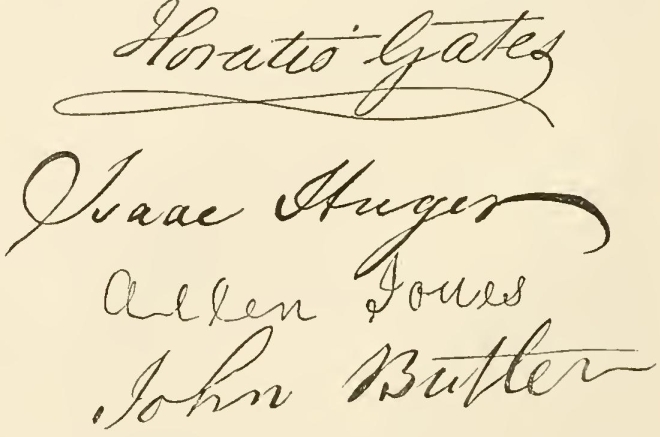 Horatio Gates
Isaac Huger
Allen Jones
John Butler